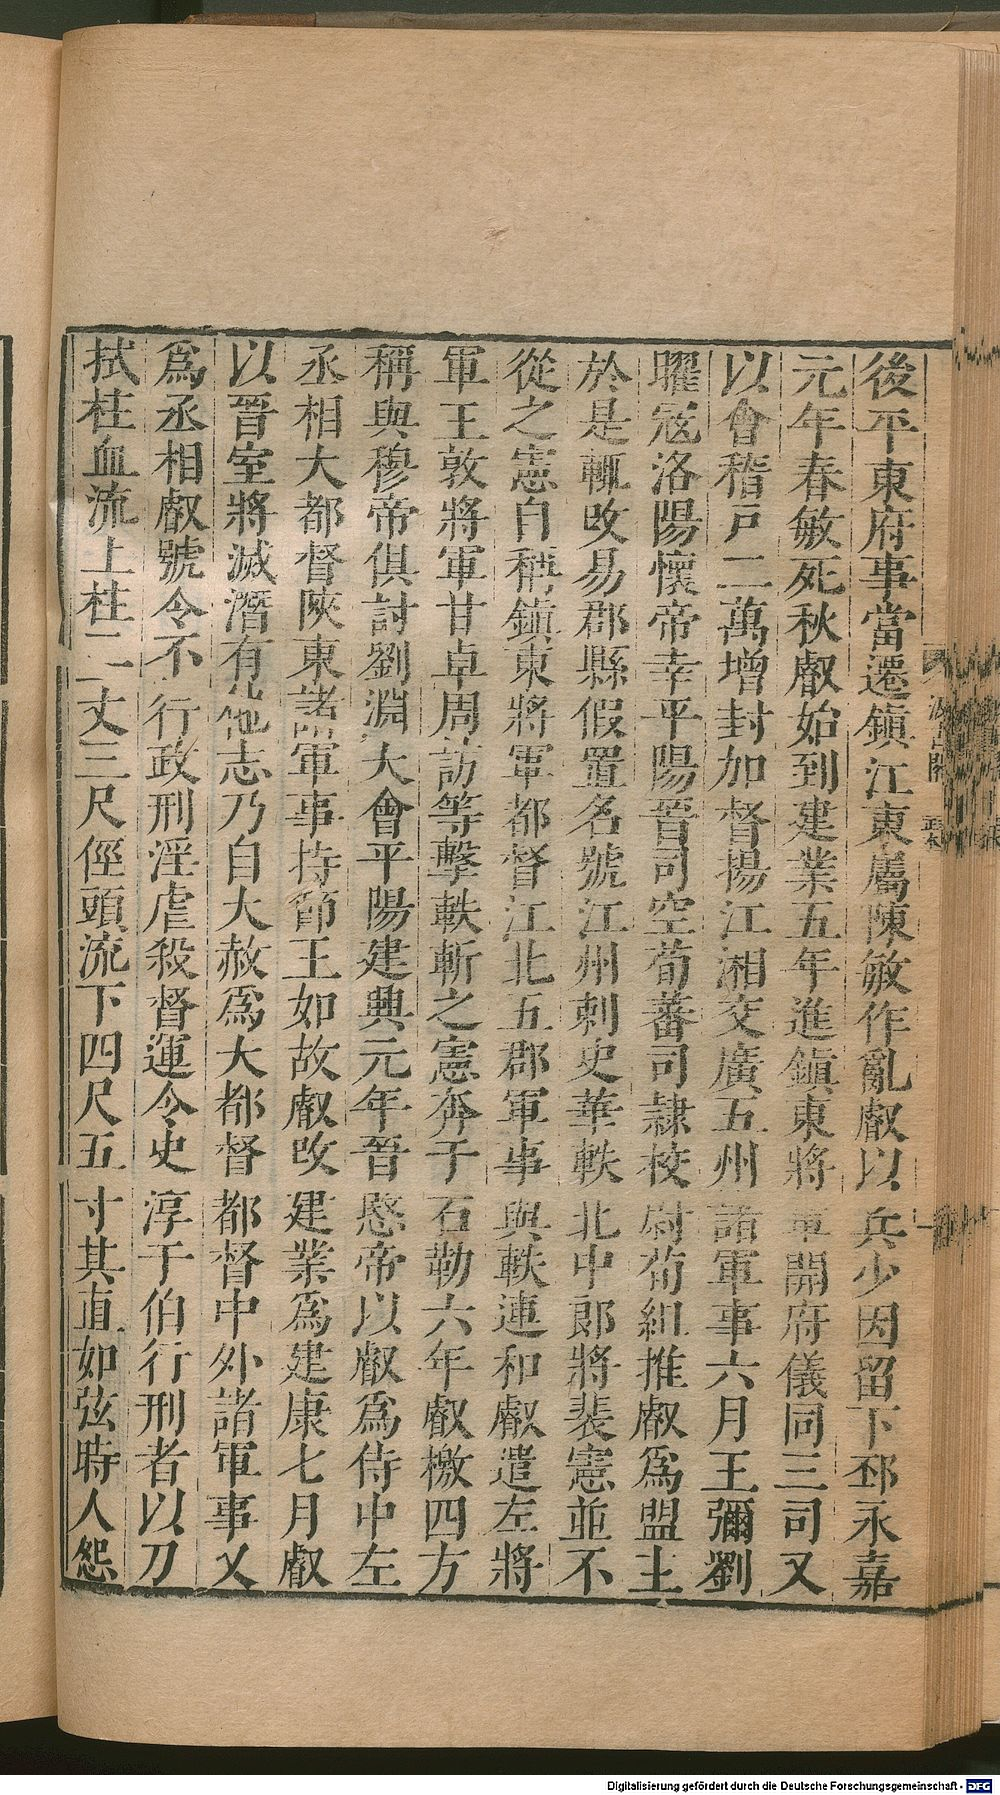 後平東府事當遷鎭江東屬陳敏作亂叡以兵少因留下邳永嘉
元年春敏死秋叡始到建業五年進鎭東將軍開府儀同三司又
以會稽戸二萬增封加督揚江湘交廣五州諸軍事六月王彌劉
曜寇洛陽懷帝幸平陽晉司空荀蕃司隷校尉荀組推叡爲盟主
於是輒改易郡縣假置名號江州刺史華軼北中郎將裴憲並不
從之憲自稱鎭東將軍都督江北五郡軍事與軼連和叡遣左將
軍王敦將軍甘卓周訪等擊軼斬之憲奔于石勒六年叡檄四方
稱與穆帝俱討劉淵大會平陽建興元年晉愍帝以叡爲侍中左
丞相大都督陝東諸軍事持節王如故叡改建業爲建康七月叡
以晉室將滅潛有他志乃自大赦爲大都督都督中外諸軍事又
爲丞相叡號令不行政刑淫虐殺督運令史淳于伯行刑者以刀
拭柱血流上柱二丈三尺俓頭流下四尺五寸其直如弦時人怨
Digitalisierung gefördert durch die Deutsche Forschungsgemeinschaft - DFG